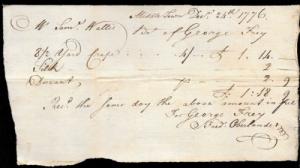 Middle Town Dec.r 28th 1776
Mr Saml Wallis Bot of George Frey
8 1/2 Yard Crape 4/ £ 1. 14.
Silk 2
Durant 2. 9
£ 1. 18. 9
Recd the same day the above amount in full
For George Frey